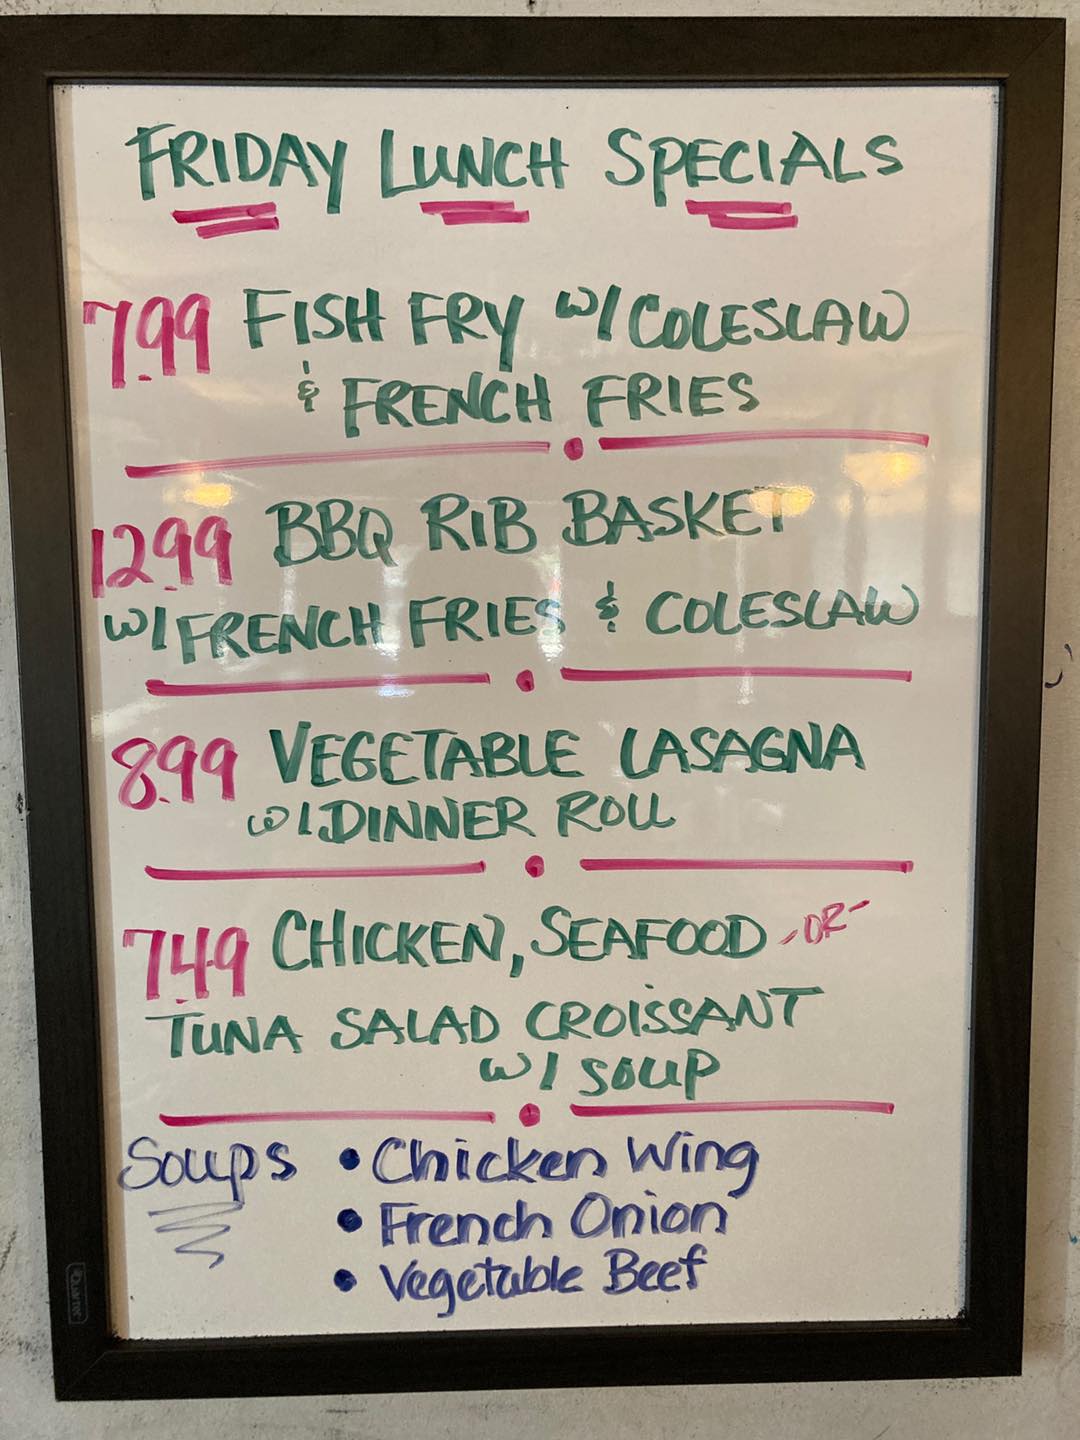 FRIDAY LUNCH SPECIALS
7.99 FISH FRY w/ COLESLAW
& FRENCH FRIES
12.99 BBQ RIB BASKET
w/ FRENCH FRIES & COLESLAW
8.99 VEGETABLE LASAGNA
w/ DINNER ROLL
7.49 CHICKEN, SEAFOOD -OR-
TUNA SALAD CROISSANT
w/ SOUP
Soups • Chicken Wing
• French Onion
• Vegetable Beef
QUARTET